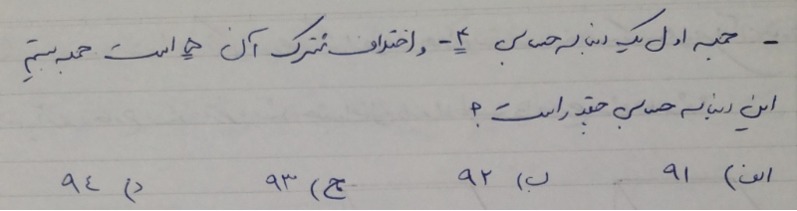 - جمله اول یک دنباله حسابی ۴- و اختلاف مشترک آن ۵ است جمله بیستم
این دنباله حسابی چقدر است؟
الف) ۹۱ ب) ۹۲ ج) ۹۳ د) ۹٤